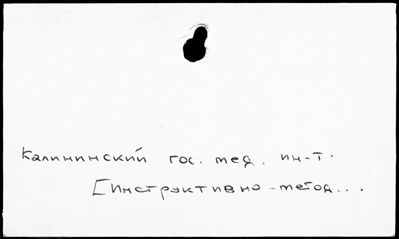 Калининский гос. мед. ин-т.
[Инструктивно-метод...